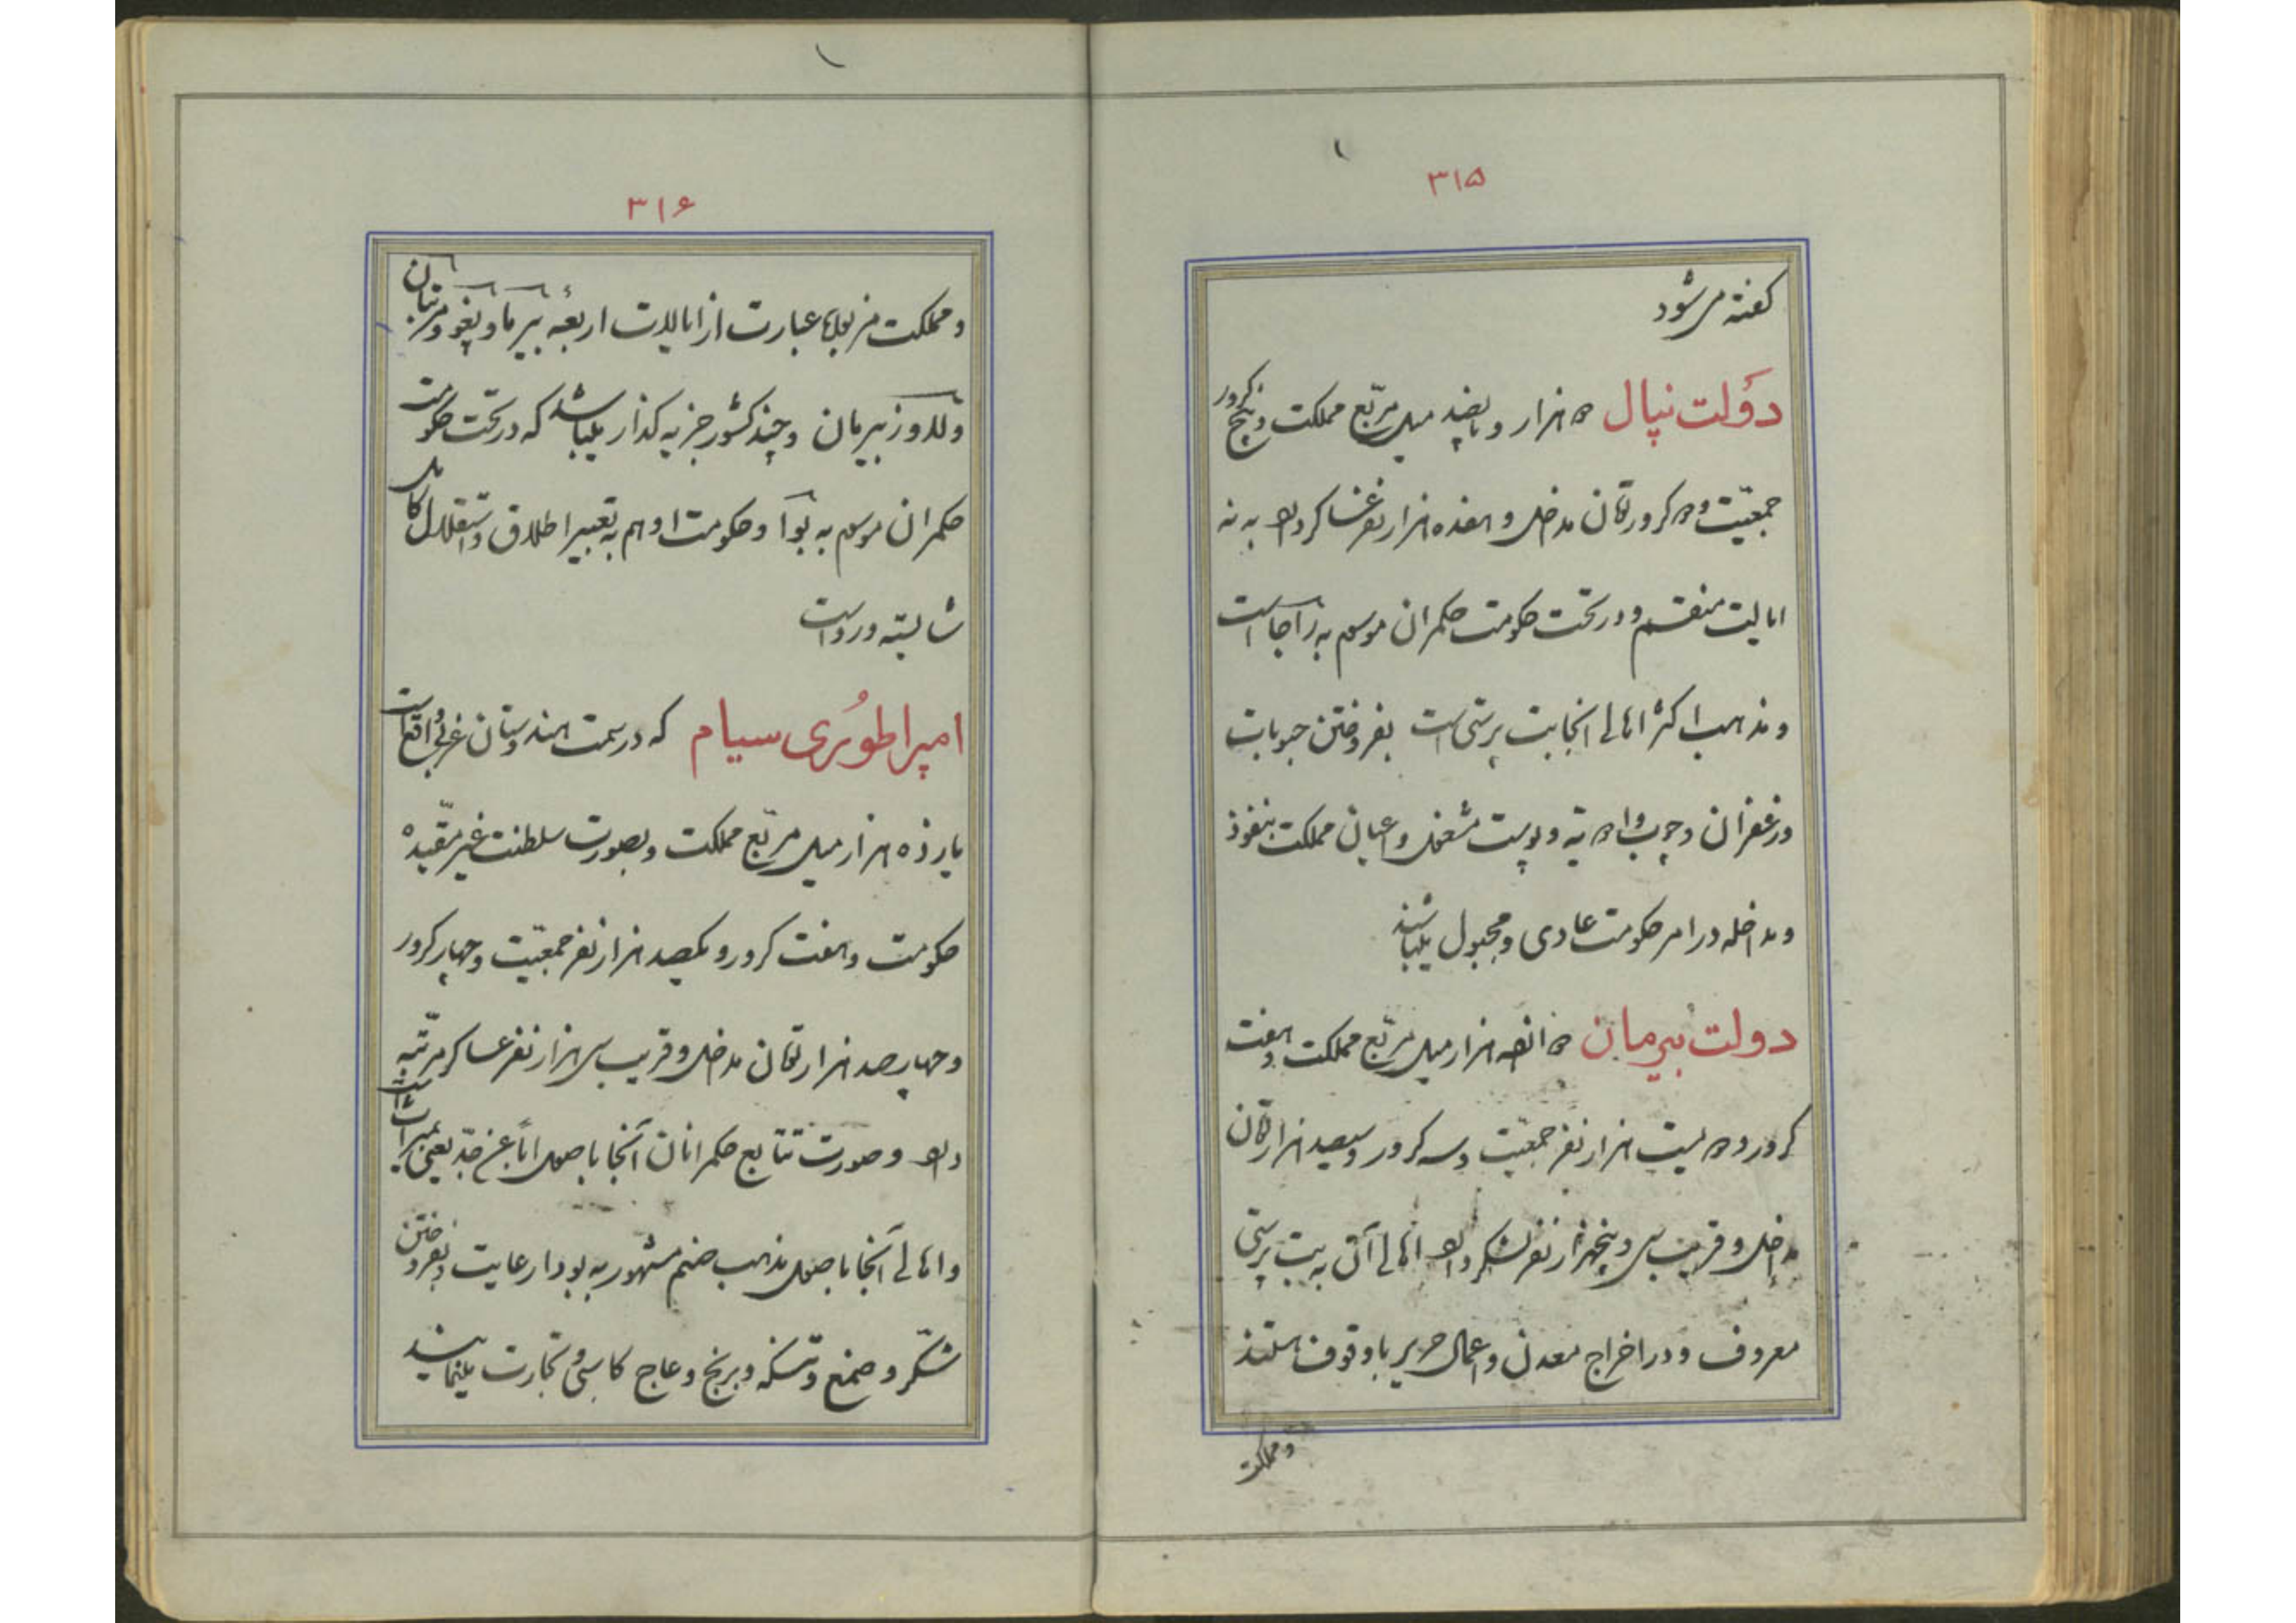 ۳۱۵
گفته می‌شود
دَولت نپال دو هزار و پانصد میل مربّع مملکت و پنج کرور
جمعیّت و دو کرور تومان مداخل و هفده هزار نفر عساکر دارد به نه
ایالت منقسم و در تحت حکومت حکمران موسوم به راجا است
و مذهب اکثر اهالی آنجا بت پرستی است بفروختن حبوبات
و زعفران و چوب و ادویه و پوست مشغول و اعیان مملکت بنفوذ
و مداخله در امر حکومت عادی و مجبول میباشند
دولت بیرمان دوانزده هزار میل مربّع مملکت و هفت
کرور و دویست هزار نفر جمعیّت و سه کرور و سیصد هزار تومان
مداخل و قریب سی و پنجهزار نفر لشکر دارد اهالی آن به بت پرستی
معروف و در اخراج معدن و اعمال حریر با وقوف هستند
و مملکت
۳۱۶
و مملکت مزبوره عبارت از ایالات اربعهٔ بیرما و پغو و مرتبان
و لاوز بیرمان و چند کشور جزیه گذار میباشد که در تحت حکومت
حکمران موسوم به بوآ و حکومت او هم به تعبیر اطلاق و استقلال کامل
شایسته و رواست
امپراطوُری سیام که در سمت هندوستان غربی واقع است
یازده هزار میل مربّع مملکت و بصورت سلطنت غیر مقیّده
حکومت و هفت کرور و یکصد هزار نفر جمعیّت و چهار کرور
و چهارصد هزار تومان مداخل و قریب سی هزار نفر عساکر مرتّبه
دارد و صورت تتابع حکمرانان آنجا باصول اباً عن جدّ یعنی بمیراث است
و اهالی آنجا باصول مذهب صنم مشهور به بودا رعایت و بفروختن
شکّر و صمغ و تنسکه و برنج و عاج کاسبی و تجارت مینمایند